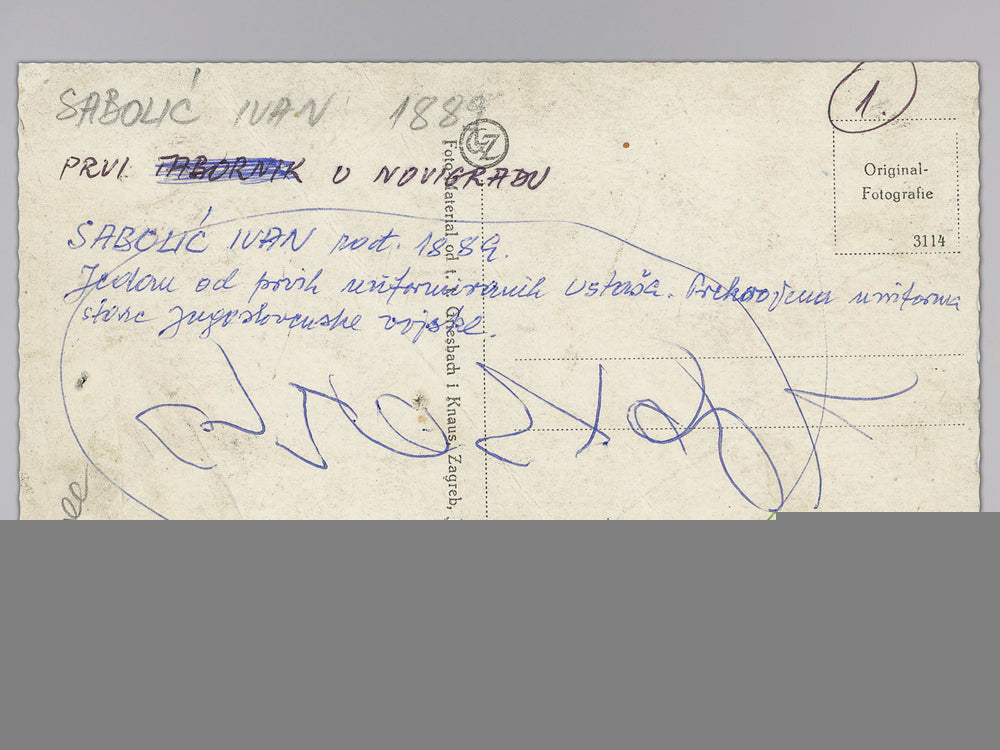 SABOLIĆ IVAN 1889
1.
PRVI TABORNIK U NOVIGRADU
Original-
Fotografie
3114
SABOLIĆ IVAN rođ. 1889.
Jedan od prvih uniformiranih ustaša. Prekrojena uniforma
stare jugoslovenske vojske.
Foto Material od t. Griesbach i Knaus, Zagreb,